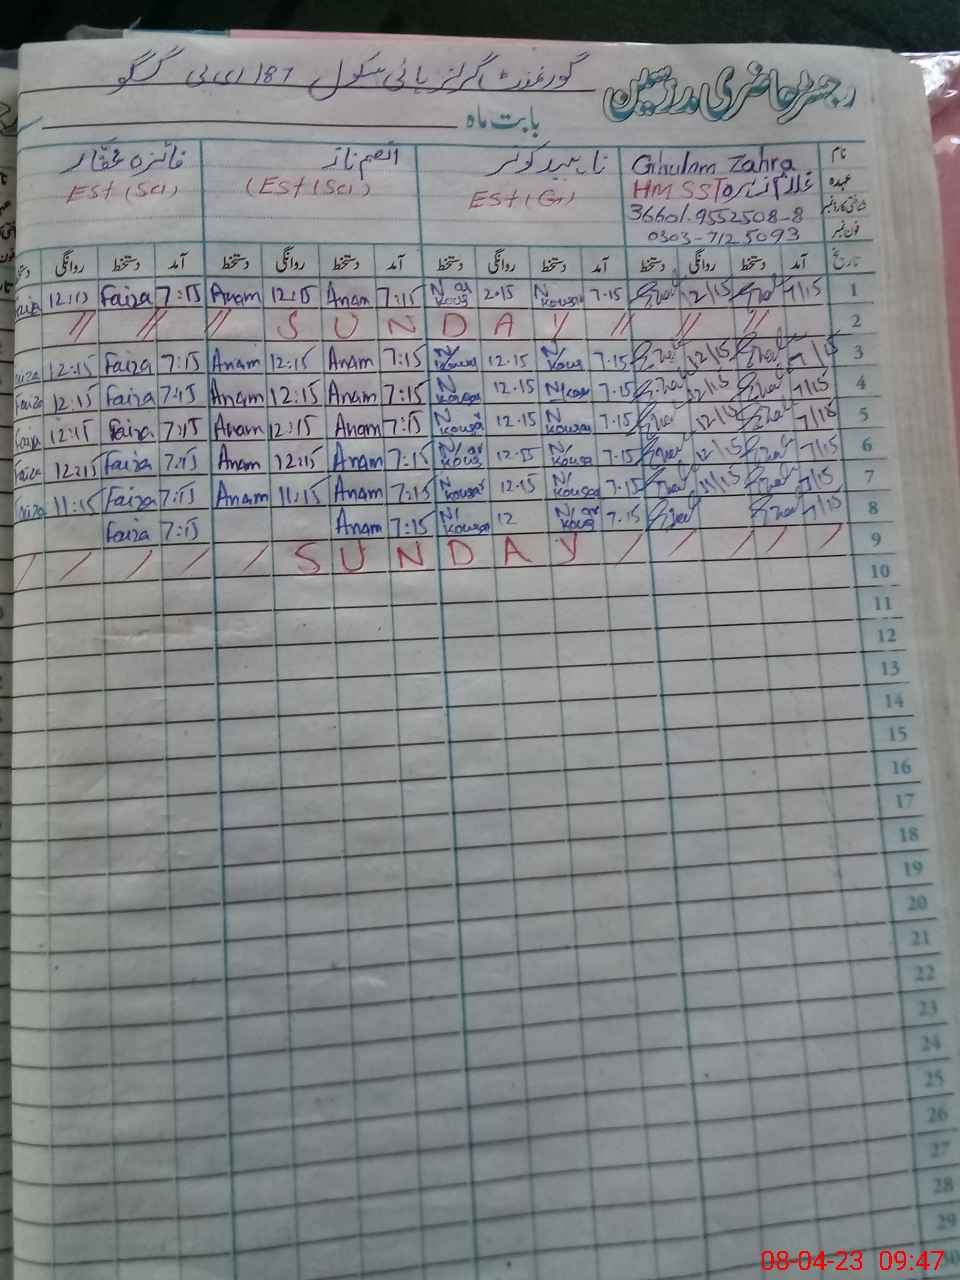 رجسٹر حاضری مدرسین
گورنمنٹ گرلز ہائی سکول 187/ای بی گگو
بابت ماہ
نام Ghulam Zahra ناہید کوثر انعم ناز فائزہ غفار
عہدہ HM SST غلام زہرہ EST (G) (EST (Sci) EST (Sci)
36601-9552508-8
فون نمبر 0303-7125093
تاریخ آمد دستخط روانگی دستخط آمد دستخط روانگی دستخط آمد دستخط روانگی دستخط آمد دستخط روانگی
1 7/15 12/15 7.15 N Kousar 2.15 N ar Kous 7:15 Anam 12:15 Anam 7:15 Faiza 12:15 Faiza
2 // // // S U N D A Y // // //
3 7/15 12/15 7.15 N/ Kous 12.15 N/ Kousar 7:15 Anam 12:15 Anam 7:15 Faiza 12:15 Faiza
4 7/15 12/15 7.15 N/Kous 12.15 N Kousar 7:15 Anam 12:15 Anam 7:15 Faiza 12:15 Faiza
5 7/15 12/15 7.15 N Kousar 12.15 N Kousar 7:15 Anam 12:15 Anam 7:15 Faiza 12:15 Faiza
6 7/15 12/15 7.15 N/ Kousa 12.15 N/ar Kous 7:15 Anam 12:15 Anam 7:15 Faiza 12:15 Faiza
7 7/15 11/15 7.15 N/ Kousar 12.15 N/ Kousar 7:15 Anam 11:15 Anam 7:15 Faiza 11:15 Faiza
8 7/15 7.15 N/ ar Kous 12 N/ Kousar 7:15 Anam 7:15 Faiza
9 / / / / / S U N D A Y / / / / /
10
11
12
13
14
15
16
17
18
19
20
21
22
23
24
25
26
27
28
29
08-04-23 09:47